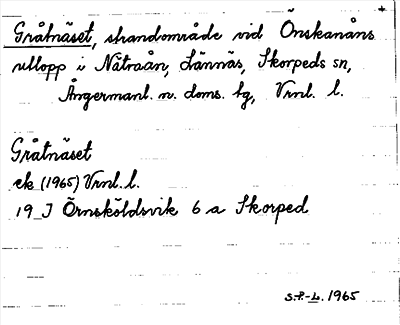 Gråtnäset, strandområde vid Önskanåns
utlopp i Nätraån, Lännäs, Skorpeds sn,
Ångermanl. n. doms. tg, Vrnl. l.
Gråtnäset
ek (1965) Vrnl. l.
19 J Örnsköldsvik 6 a Skorped
S.P.-L. 1965